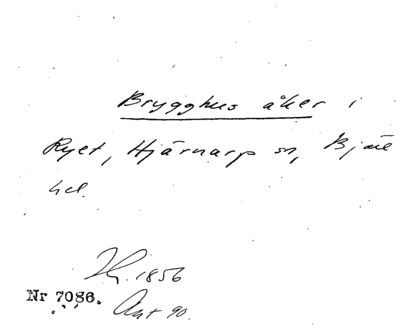 Brygghus åker i
Ryet, Hjärnarp sn, Bjäre
hd.
1856
Nr 7086.
Ant 90.